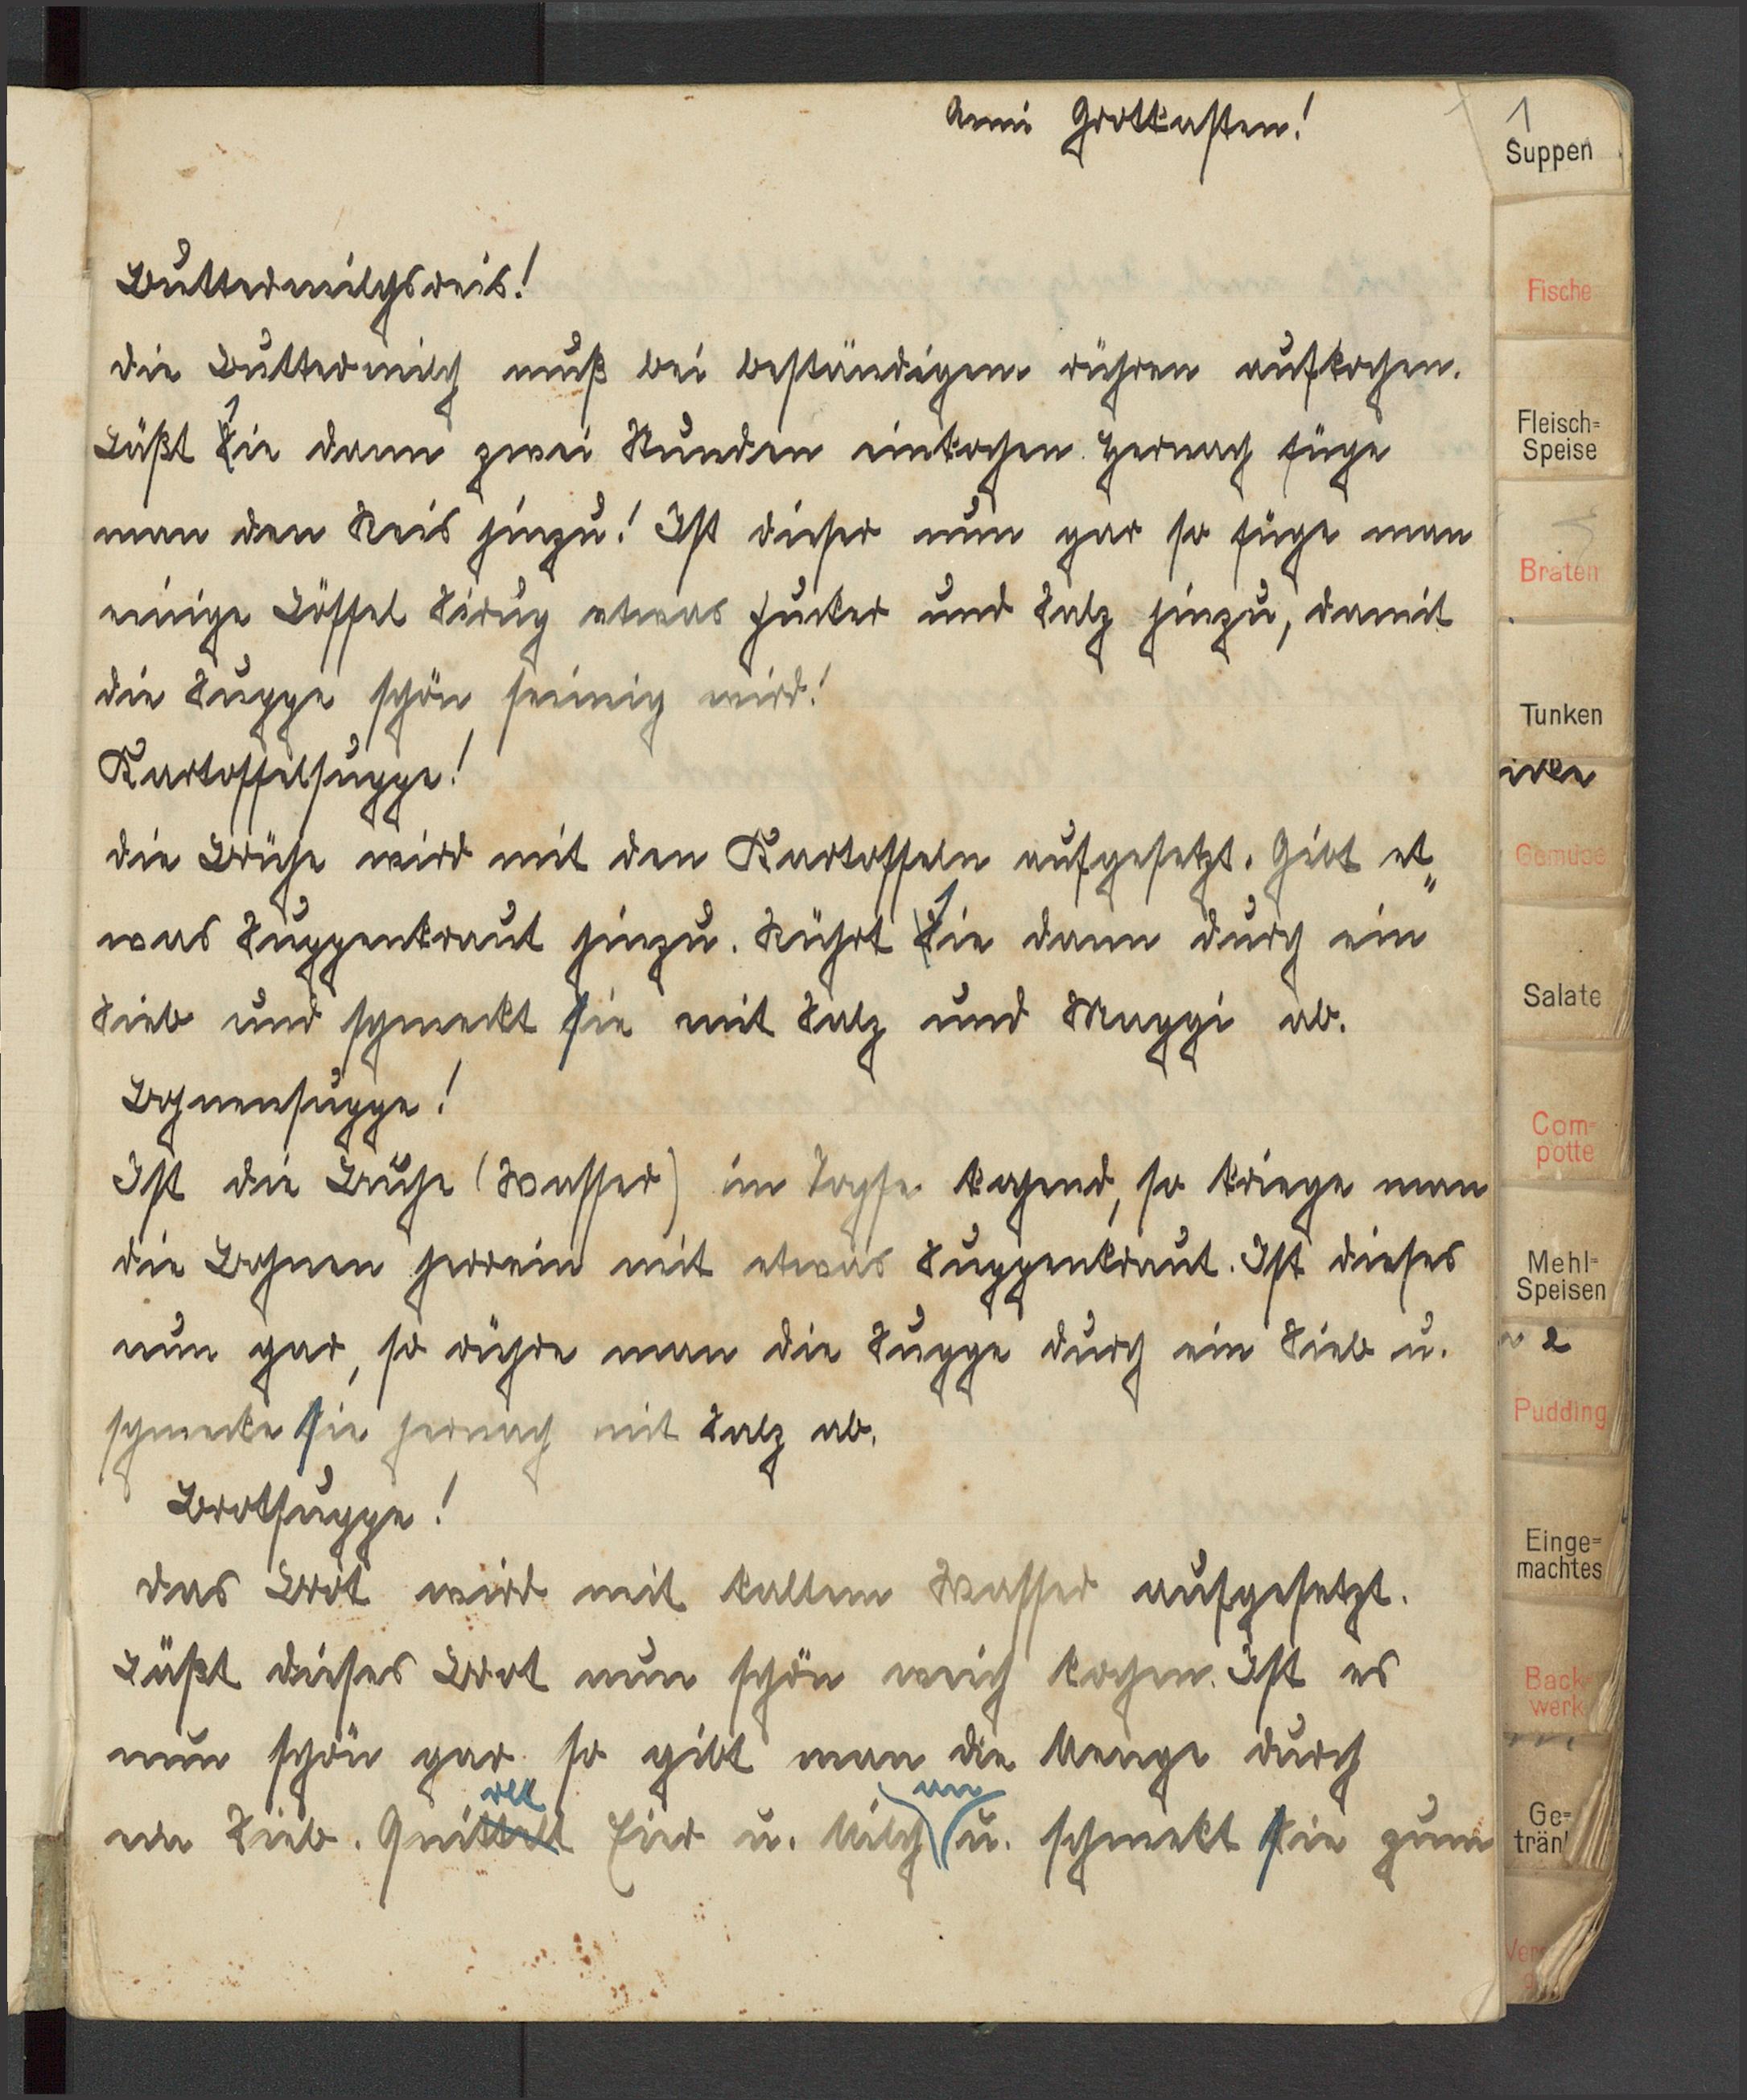 Anni Grotkasten!
1
Suppen
Buttermilchsreis!
Fische
die Buttermilch muß bei beständigem rühren aufkochen.
Läßt sie dann zwei Stunden einkochen. Hernach füge
Fleisch=
Speise
man den Reis hinzu! Ist dieser nun gar so füge man
Braten
einige Löffel Sirup etwas Zucker und Salz hinzu, damit
die Suppe schön seimig wird!
Tunken
Kartoffelsuppe!
die Brühe wird mit den Kartoffeln aufgesetzt. Gibt et„
Gemüse
was Suppenkraut hinzu. Rührt sie dann durch ein
Sieb und schmeckt sie mit Salz und Maggi ab.
Salate
Bohnensuppe!
Com=
potte
Ist die Brühe (Wasser) im Topfe kochend, so kriege man
die Bohnen herrein mit etwas Suppenkraut. Ist dieses
Mehl=
Speisen
nun gar, so rühre man die Suppe durch ein Sieb u.
schmecke sie hernach mit Salz ab.
Pudding
Brotsuppe!
Einge=
machtes
das Brot wird mit kaltem Wasser aufgesetzt.
Läßt dieses Brot nun schön weich kochen. Ist es
Back
werk
nun schön gar so gibt man die Menge durch
ein Sieb. Quittelt Eier u. Milch an u. schmekt sie zum
Ge=
trän
Ver